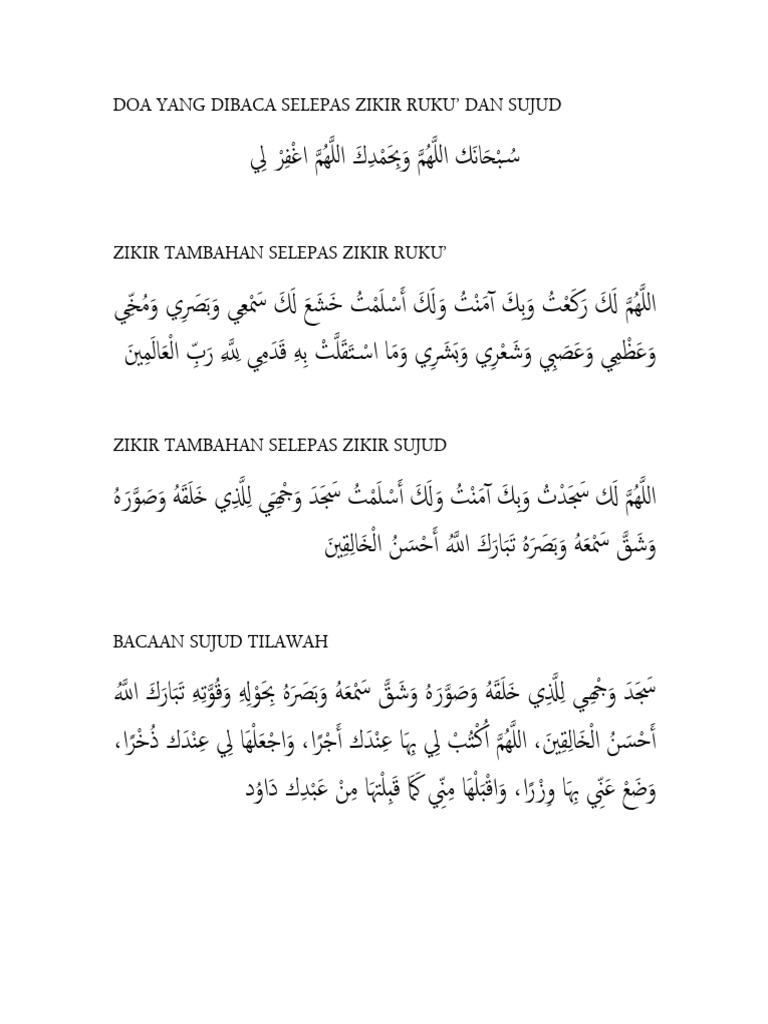 DOA YANG DIBACA SELEPAS ZIKIR RUKU’ DAN SUJUD
سُبْحَانَك اللَّهُمَّ وَبِحَمْدِكَ اللَّهُمَّ اغْفِرْ لِي
ZIKIR TAMBAHAN SELEPAS ZIKIR RUKU’
اللَّهُمَّ لَكَ رَكَعْتُ وَبِكَ آمَنْتُ وَلَكَ أَسْلَمْتُ خَشَعَ لَكَ سَمْعِي وَبَصَرِي وَمُخِّي
وَعَظْمِي وَعَصَبِي وَشَعْرِي وَبَشَرِي وَمَا اسْتَقَلَّتْ بِهِ قَدَمِي لِلَّهِ رَبِّ الْعَالَمِينَ
ZIKIR TAMBAHAN SELEPAS ZIKIR SUJUD
اللَّهُمَّ لَك سَجَدْتُ وَبِكَ آمَنْتُ وَلَكَ أَسْلَمْتُ سَجَدَ وَجْهِيَ لِلَّذِي خَلَقَهُ وَصَوَّرَهُ
وَشَقَّ سَمْعَهُ وَبَصَرَهُ تَبَارَكَ اللَّهُ أَحْسَنُ الْخَالِقِينَ
BACAAN SUJUD TILAWAH
سَجَدَ وَجْهِي لِلَّذِي خَلَقَهُ وَصَوَّرَهُ وَشَقَّ سَمْعَهُ وَبَصَرَهُ بِحَوْلِهِ وَقُوَّتِهِ تَبَارَكَ اللَّهُ
أَحْسَنُ الْخَالِقِينَ، اللَّهُمَّ اُكْتُبْ لِي بِهَا عِنْدَك أَجْرًا، وَاجْعَلْهَا لِي عِنْدَك ذُخْرًا،
وَضَعْ عَنِّي بِهَا وِزْرًا، وَاقْبَلْهَا مِنِّي كَمَا قَبِلْتهَا مِنْ عَبْدِك دَاوُد